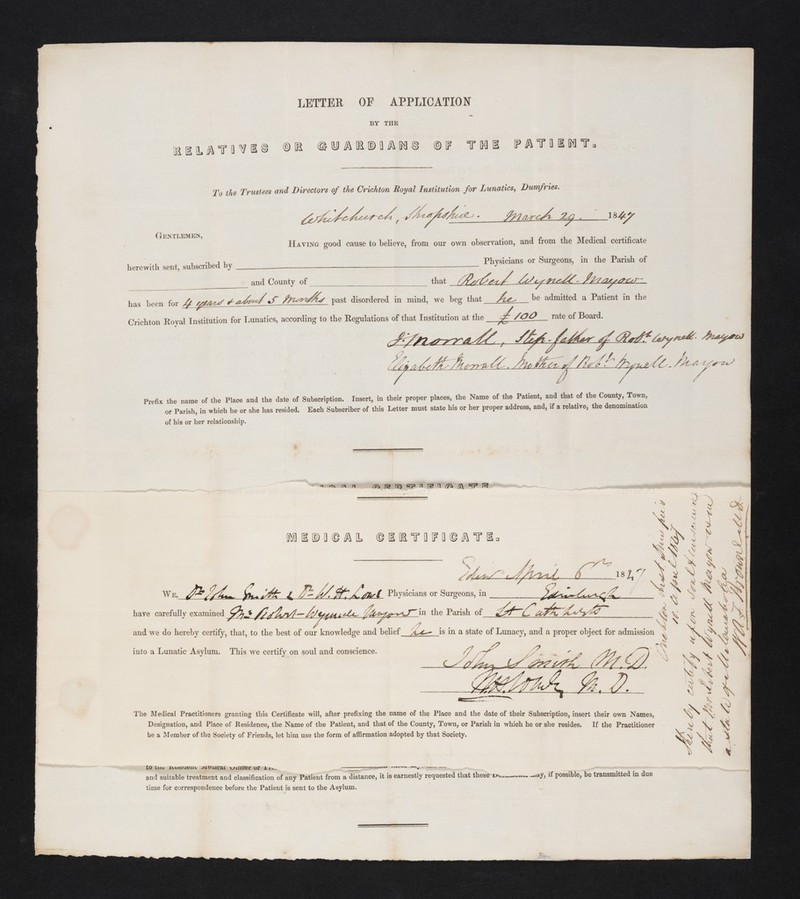 LETTER OF APPLICATION
BY THE
RELATIVES OR GUARDIANS OF THE PATIENT.
To the Trustees and Directors of the Crichton Royal Institution for Lunatics, Dumfries.
Whitchurch, Shropshire. March 29. 1847
GENTLEMEN,
HAVING good cause to believe, from our own observation, and from the Medical certificate
herewith sent, subscribed by Physicians or Surgeons, in the Parish of
and County of that Robert Wynell Mayow
has been for 4 years & about 5 months past disordered in mind, we beg that he be admitted a Patient in the
Crichton Royal Institution for Lunatics, according to the Regulations of that Institution at the £100 rate of Board.
Morrall, Step-father of Robt. Wynell Mayow
Elizabeth Morrall. Mother of Robt. Wynell. Mayow
Prefix the name of the Place and the date of Subscription. Insert, in their proper places, the Name of the Patient, and that of the County, Town,
or Parish, in which he or she has resided. Each Subscriber of this Letter must state his or her proper address, and, if a relative, the denomination
of his or her relationship.
MEDICAL CERTIFICATE.
Edinr April 6th 1847
WE, Dr John Smith & Dr W. H. Lowe Physicians or Surgeons, in Edinburgh
have carefully examined Mr Robert Wynell Mayow in the Parish of St Cuthberts
and we do hereby certify, that, to the best of our knowledge and belief he is in a state of Lunacy, and a proper object for admission
into a Lunatic Asylum. This we certify on soul and conscience.
John Smith M.D.
W H Lowe M.D.
The Medical Practitioners granting this Certificate will, after prefixing the name of the Place and the date of their Subscription, insert their own Names,
Designation, and Place of Residence, the Name of the Patient, and that of the County, Town, or Parish in which he or she resides. If the Practitioner
be a Member of the Society of Friends, let him use the form of affirmation adopted by that Society.
Crichton Inst Dumfries
April 1847
I hereby certify upon soul & conscience
that Mr Robert Wynell Mayow is in
a state of Melancholia
W A F Browne M.D.
to the Resident Medical Officer of
and suitable treatment and classification of any Patient from a distance, it is earnestly requested that these if possible, be transmitted in due
time for correspondence before the Patient is sent to the Asylum.